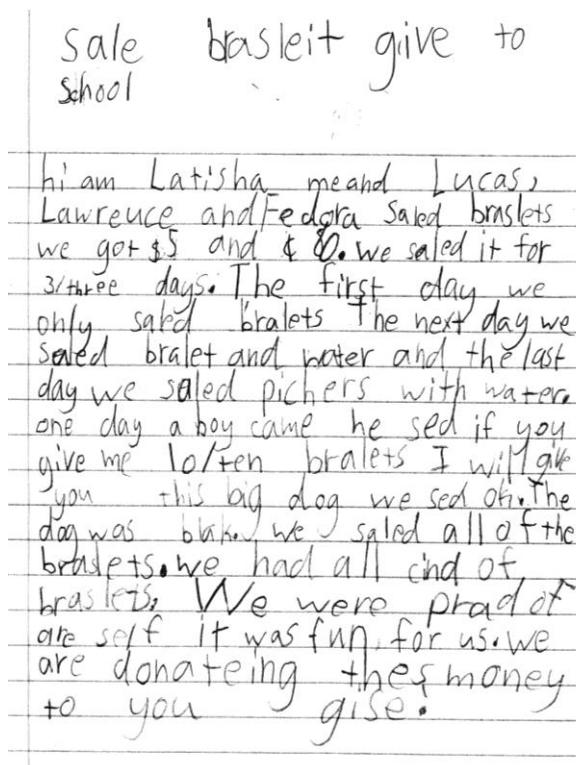 sale brasleit give to
school
hi am Latisha meand Lucas,
Lawreuce and Fedora Saled braslets
we got $5 and ¢ 80. we saled it for
3/three days. The first day we
only saled bralets The next day we
saled bralet and water and the last
day we saled pichers with water.
one day a boy came he sed if you
give me 10/ten bralets I will give
you this big dog we sed oh. The
dog was blak. we saled all of the
braslets. we had all cind of
braslets, We were prad of
are self it was fun for us. we
are donateing thes money
to you gise.